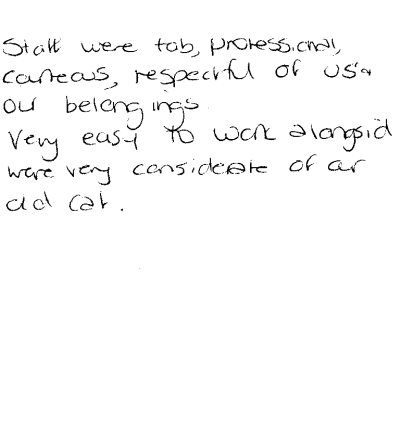 Staff were fab, professional,
courteous, respectful of us &
our belongings
Very easy to work alongsid
were very considerate of our
old cat.